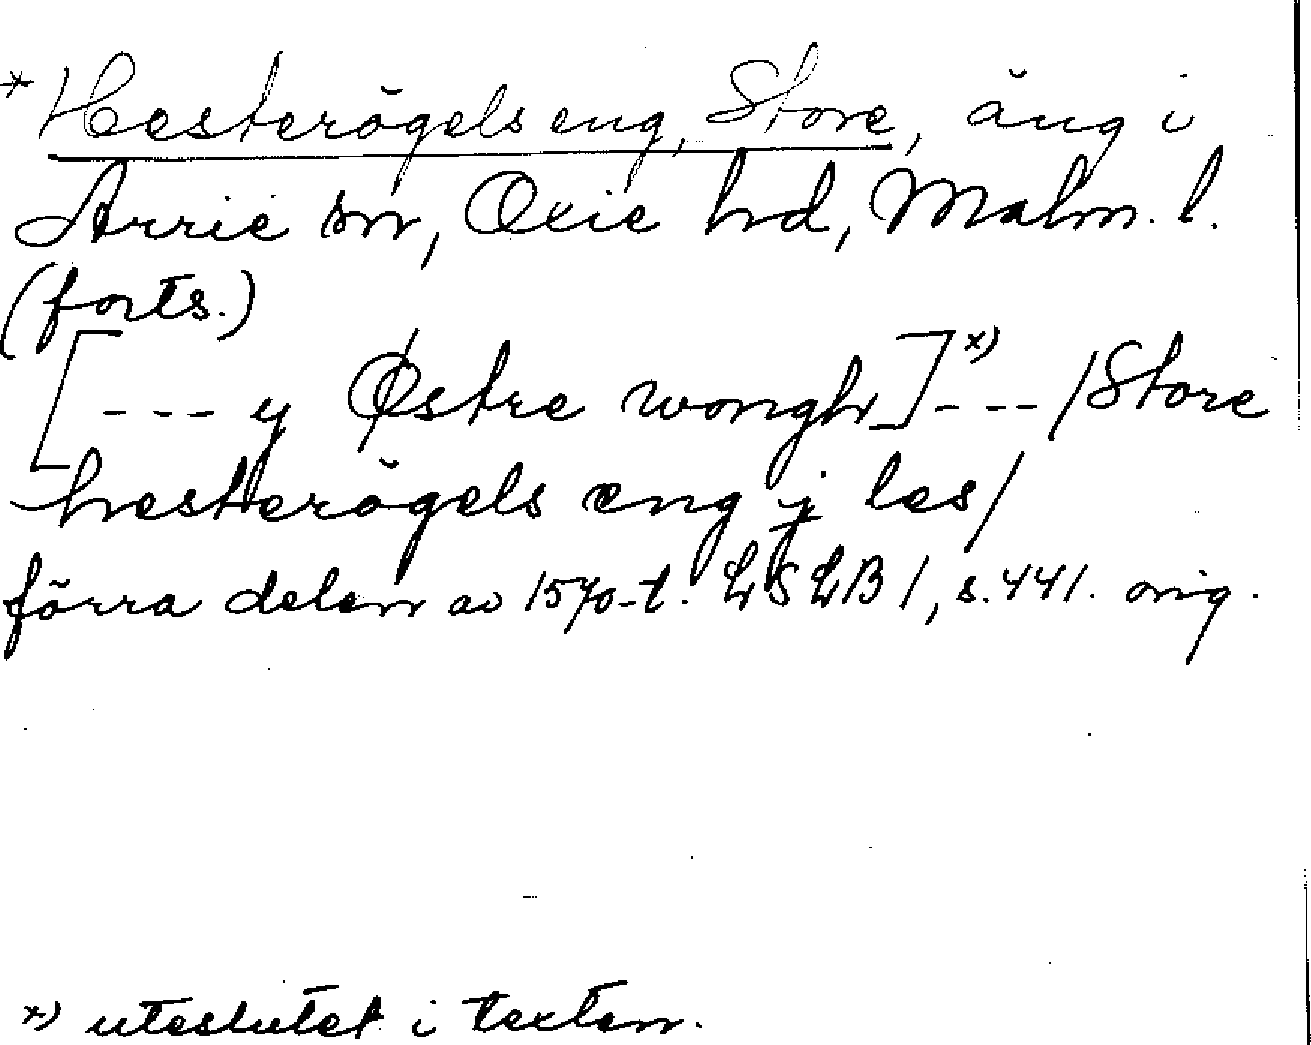 * Hesterögels eng, Store, äng i
Arrie sn, Oxie hd, Malm. l.
(forts.)
[--- y Østre wongh]ˣ⁾--- /Store
hesterögels eng j les/
förra delen av 1570-t. LSLB 1, s. 441. orig.
x) uteslutet i texten.